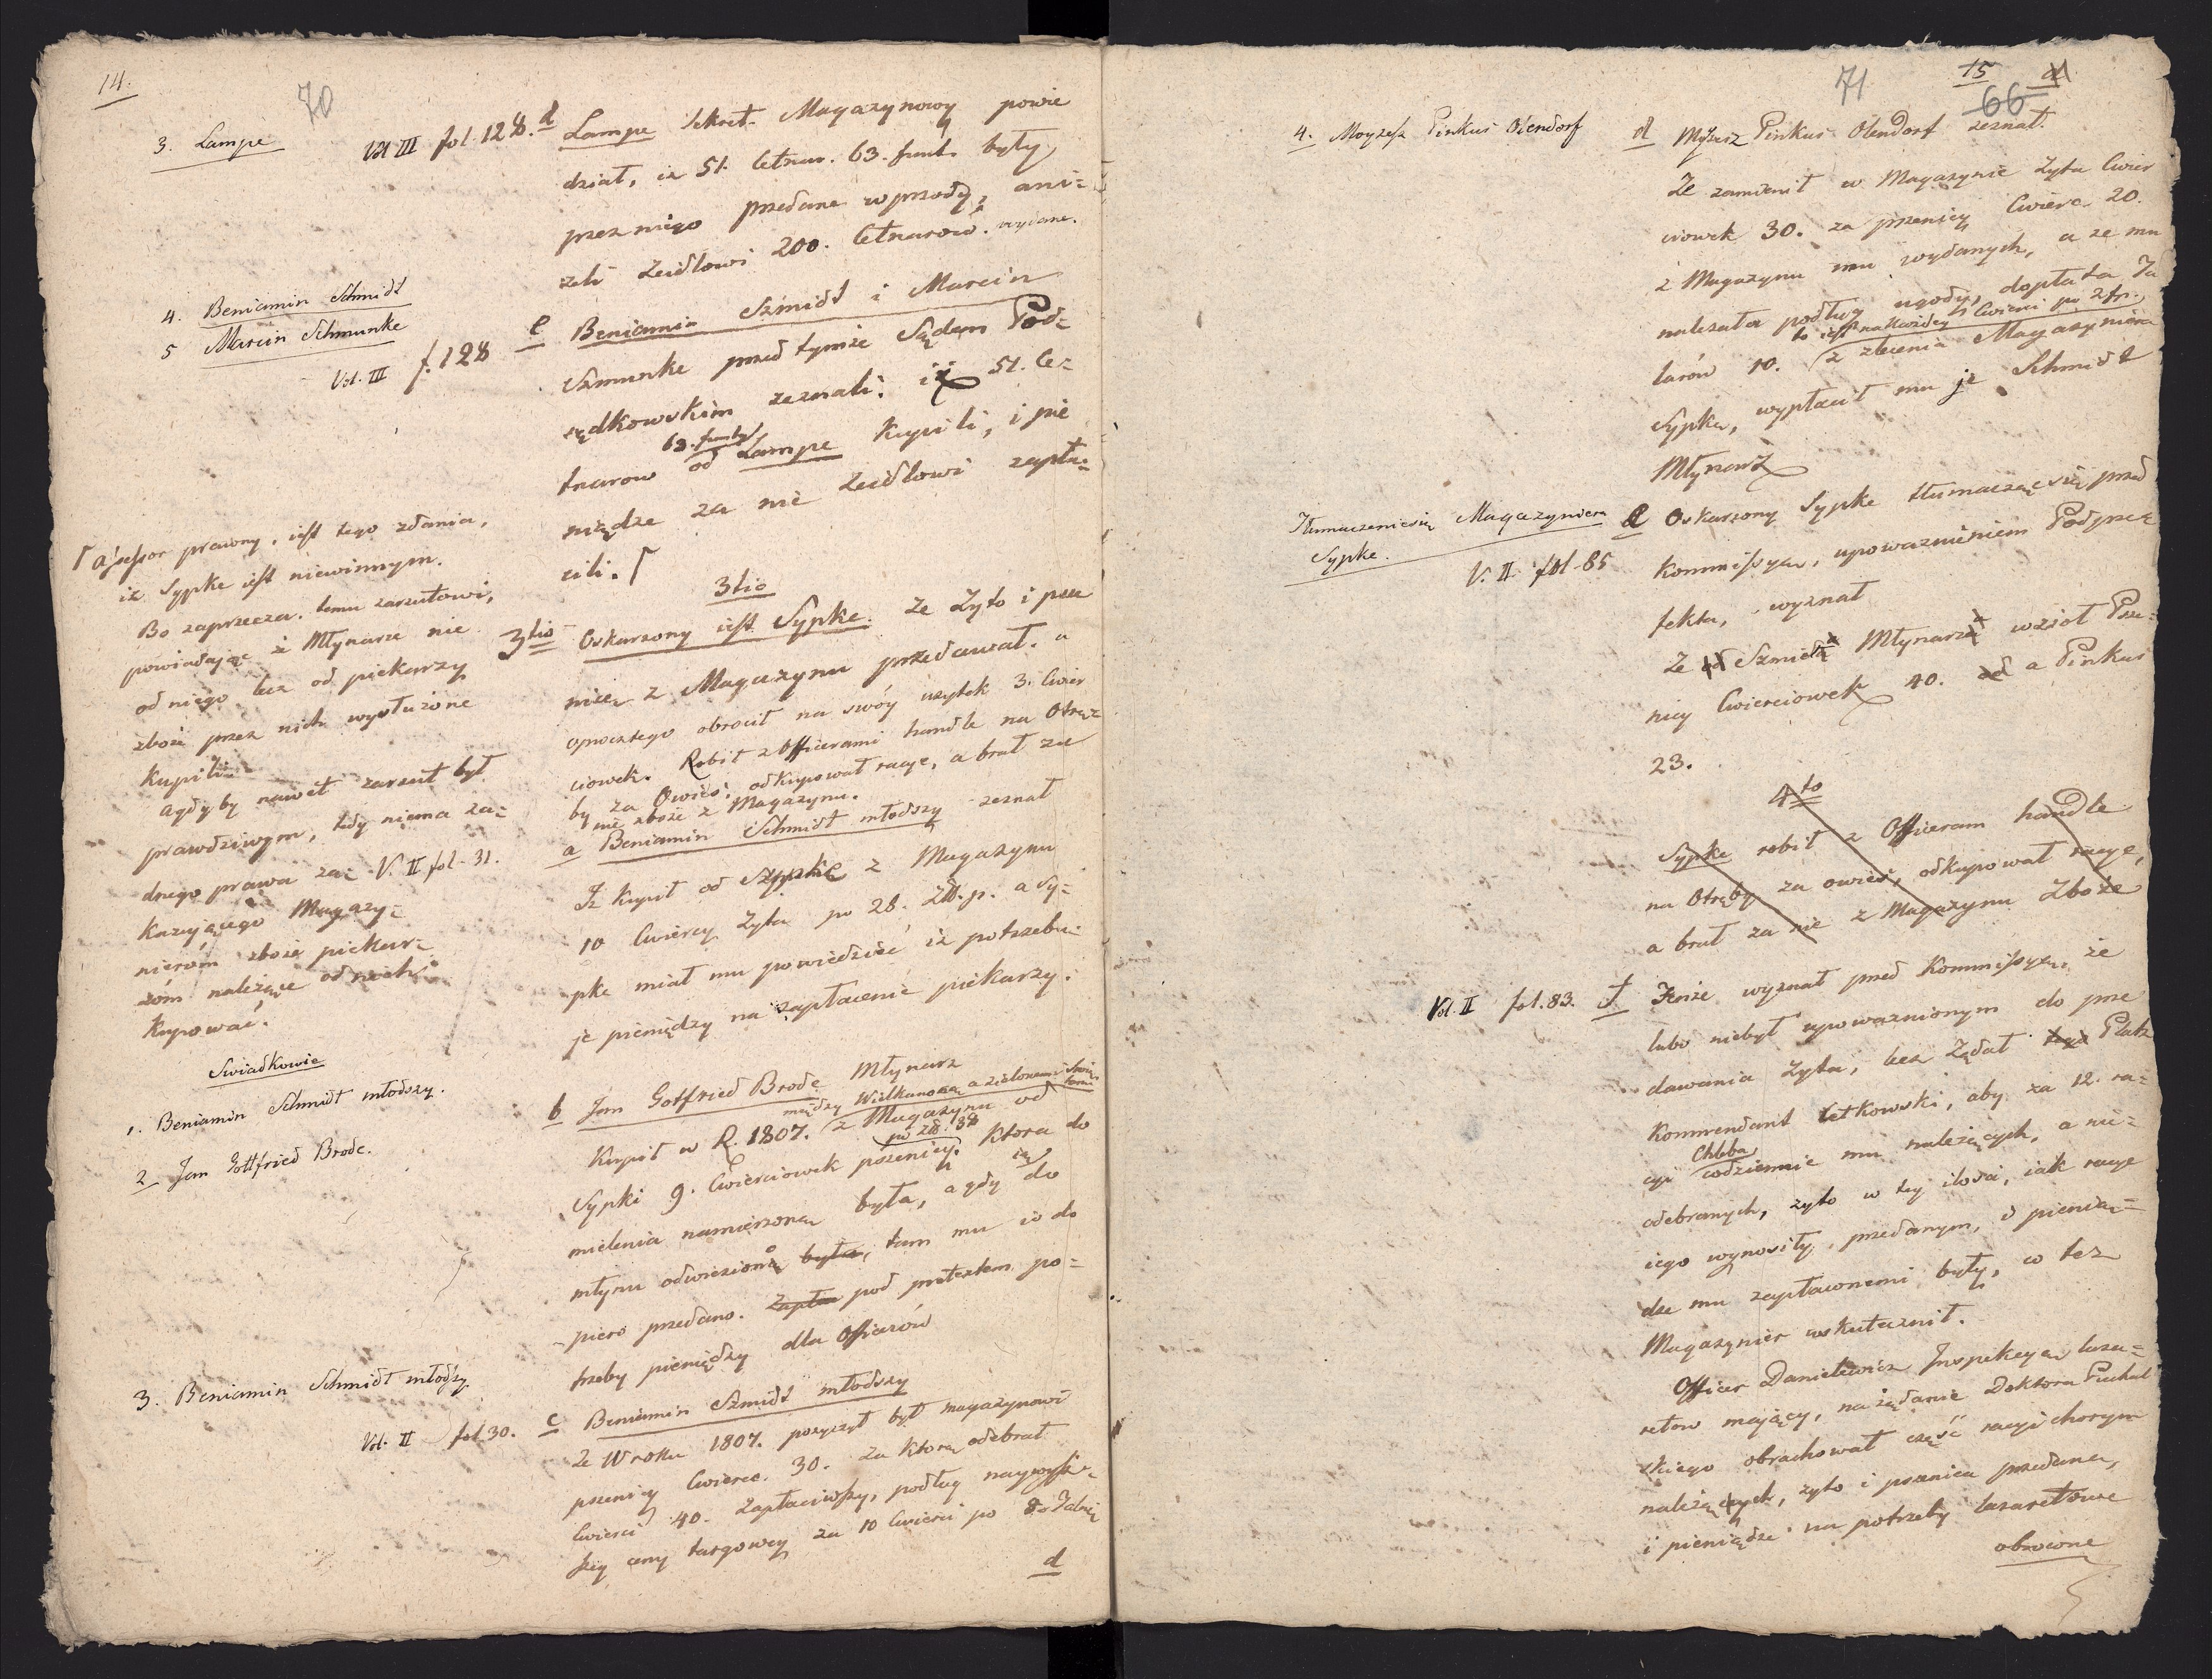 14.
70
3. Lampe
Vol III fol. 128. d Lampe Sekret. Magazynowy powie
dział, iż 51. Cetnar. 63. funt. były
przez niego przedane wprzody, ani=
żeli Zeidlowi 200. Cetnarow. wydane.
4. Beniamin Schmidt
5 Marcin Schmunke
Vol. III f. 128
e Beniamin Szmidt i Marcin
Szmunke przed tymże Sądem Pod=
sędkowskim zeznali: iż 51. Ce=
63. funty
tnarow od Lampe kupili, i pie
niądze za nie Zeidlowi zapła=
cili. Γ
Γ Assessor prawny, iest tego zdania,
iż Sypke iest niewinnym.
Bo zaprzecza temu zarzutowi,
powiadaiąc iż Młynarze nie
od niego lecz od piekarzy
zboże przez nich wysłużone
kupili.
a gdy by nawet zarzut był
prawdziwym, tedy niema ża=
dnego prawa za= V. II fol. 31.
kazuiącego Magazy=
nierom zboże piekar=
zóm należące od nich
kupować.
3tio
3tio Oskarżony iest Sypke. Że Żyto i psze
nicę z Magazynu przedawał. a
oprocz tego obrocił na swóy użytek 3. Cwier
ciowek. Robił z Officerami handle na Otrę=
by za Owies, odkupował racye, a brał za
nie zboże z Magazynu.
Swiadkowie
1. Beniamin Schmidt młodszy.
a Beniamin Schmidt młodszy zeznał
Iż kupił od Sypke z Magazynu
10 Cwiercy Żyta po 28. Zł. p. a Sy=
pke miał mu powiedzieć iż potrzebu=
je pieniędzy na zapłacenie piekarzy.
2 Jan Gottfried Brode.
b Jan Gotfried Brode Młynarz
między Wielkanocą a zielonemi Swię
tami
Kupił w R. 1807. z Magazynu od
po Zł. 38
Sypki 9. Cwierciowek pszenicy, ktora do
mielenia namierzona była, a gdy do
młynu odwieziono była, tam mu ią do
piero przedano. Zapła pod pretextem po=
trzeby pieniędzy dla Officerów
3. Beniamin Schmidt młodszy
Vol. II fol. 30.
c Beniamin Szmidt młodszy
Że W roku 1807. pożyczył był magazynowi
pszenicy Cwierc. 30. za ktorą odebrał
Cwierci 40. Zapłaciwszy, podług naywyż=
szey ceny targowey za 10 Cwierci po 8. Talrn
d
71
15
66
4. Moyzesz Pinkus Olendorf
d Moyzesz Pinkus Olendorf zeznał.
Że zamienił w Magazynie Żyta Cwier
ciowek 30. za pszenicy Cwierc 20.
z Magazynu mu wydanych, a że mu
należała podług ugody, dopłata Ta
to iest na każdey Cwierci po 2 fr.
larów 10. z zlecenia Magazyniera
Sypke, wypłacił mu je Schmidt
Młynarz
Tłumaczeniesię Magazyniera
Sypke.
V. II fol. 85
e Oskarżony Sypke tłumacząc się przed
Kommissyą, upoważnieniem Podpre=
fekta, wyznał
Że od Szmidta Młynarza wzioł Psze=
nicy Cwierciowek 40. od a Pinkus
23.
4to
Sypke robił z Officeram handle
na Otręby za owies, odkupował racye,
a brał za nie z Magazynu Zboże
Vol. II fol. 83.
f Tenże wyznał przed Kommissyą, że
lubo niebył upoważnionym do prze
dawania Żyta, lecz Żądał tego Platz
Kommendant Letkowski, aby za 12. ra=
Chleba
cyi codziennie mu należących, a nie=
odebranych, żyto w tey ilosci, iak racye
iego wynosiły, przedanym, i pienią=
dze mu zapłaconemi były, co też
Magazynier uskutecznił.
Officer Danielewicz Inspekcyą laza=
retow maiący, na żądanie Doktora Puchal
skiego obrachował część racyi chorym
należących, żyto i pszenica przedana,
i pieniądze na potrzeby lazaretowe
obrocone